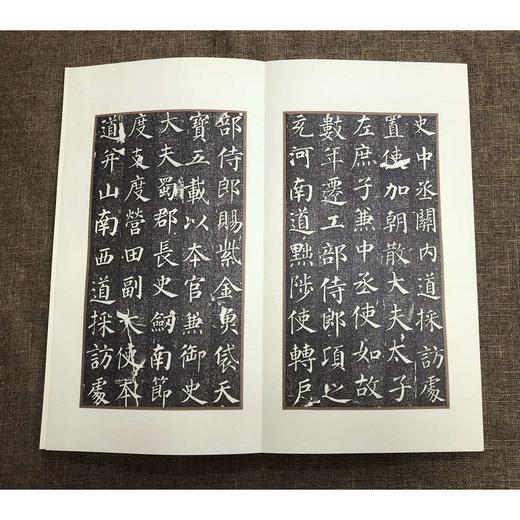 史中丞關内道採訪處
置使加朝散大夫太子
左庶子兼中丞使如故
數年遷工部侍郎頃之
充河南道黜陟使轉戶
部侍郎賜紫金魚袋天
寶五載以本官兼御史
大夫蜀郡長史劒南節
度支度營田副大使本
道并山南西道採訪處